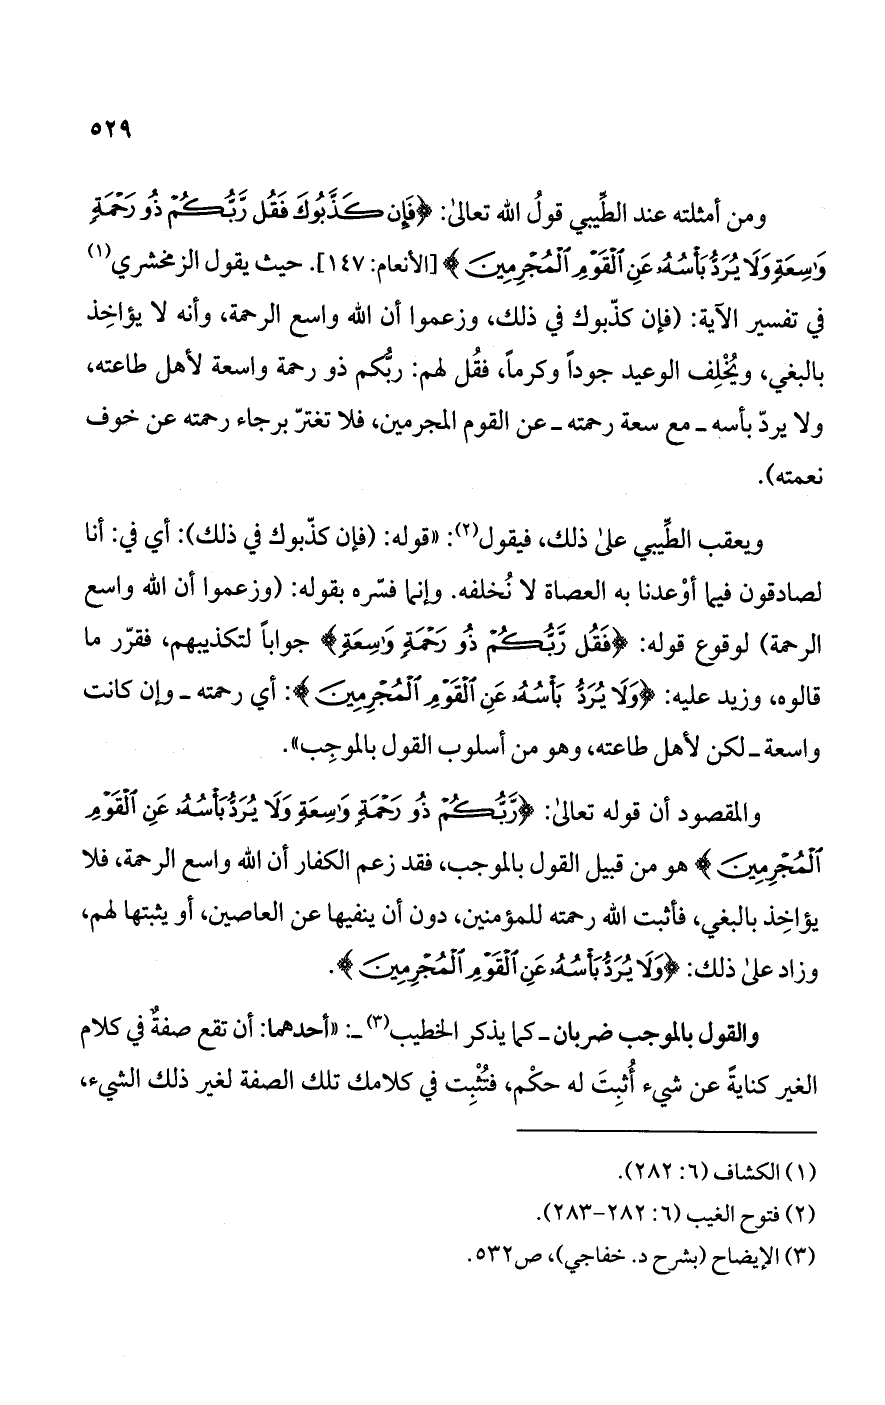 ٥٢٩
ومن أمثلته عند الطِّيبي قولُ الله تعالىٰ: ﴿فَإِن كَذَّبُوكَ فَقُل رَّبُّكُمْ ذُو رَحْمَةٍ
وَٰسِعَةٍ وَلَا يُرَدُّ بَأْسُهُۥ عَنِ ٱلْقَوْمِ ٱلْمُجْرِمِينَ﴾ [الأنعام: ١٤٧]. حيث يقول الزمخشري(١)
في تفسير الآية: (فإن كذّبوك في ذلك، وزعموا أن الله واسع الرحمة، وأنه لا يؤاخِذ
بالبغي، ويُخْلِف الوعيد جوداً وكرماً، فقُل لهم: ربُّكم ذو رحمة واسعة لأهل طاعته،
ولا يردّ بأسه ـ مع سعة رحمته ـ عن القوم المجرمين، فلا تغترّ برجاء رحمته عن خوف
نعمته).
ويعقب الطِّيبي علىٰ ذلك، فيقول(٢): «قوله: (فإن كذّبوك في ذلك): أي في: أنا
لصادقون فيما أوْعدنا به العصاة لا نُخلفه. وإنما فسّره بقوله: (وزعموا أن الله واسع
الرحمة) لوقوع قوله: ﴿فَقُل رَّبُّكُمْ ذُو رَحْمَةٍ وَٰسِعَةٍ﴾ جواباً لتكذيبهم، فقرّر ما
قالوه، وزيد عليه: ﴿وَلَا يُرَدُّ بَأْسُهُۥ عَنِ ٱلْقَوْمِ ٱلْمُجْرِمِينَ﴾: أي رحمته ـ وإن كانت
واسعة ـ لكن لأهل طاعته، وهو من أسلوب القول بالموجِب».
والمقصود أن قوله تعالىٰ: ﴿رَّبُّكُمْ ذُو رَحْمَةٍ وَٰسِعَةٍ وَلَا يُرَدُّ بَأْسُهُۥ عَنِ ٱلْقَوْمِ
ٱلْمُجْرِمِينَ﴾ هو من قبيل القول بالموجب، فقد زعم الكفار أن الله واسع الرحمة، فلا
يؤاخِذ بالبغي، فأثبت الله رحمته للمؤمنين، دون أن ينفيها عن العاصين، أو يثبتها لهم،
وزاد علىٰ ذلك: ﴿وَلَا يُرَدُّ بَأْسُهُۥ عَنِ ٱلْقَوْمِ ٱلْمُجْرِمِينَ﴾.
والقول بالموجب ضربان ـ كما يذكر الخطيب(٣) ـ: «أحدهما: أن تقع صفةٌ في كلام
الغير كنايةً عن شيء أُثبِتَ له حكْم، فتُثْبِت في كلامك تلك الصفة لغير ذلك الشيء،
(١) الكشاف (٦: ٢٨٢).
(٢) فتوح الغيب (٦: ٢٨٢-٢٨٣).
(٣) الإيضاح (بشرح د. خفاجي)، ص٥٣٢.